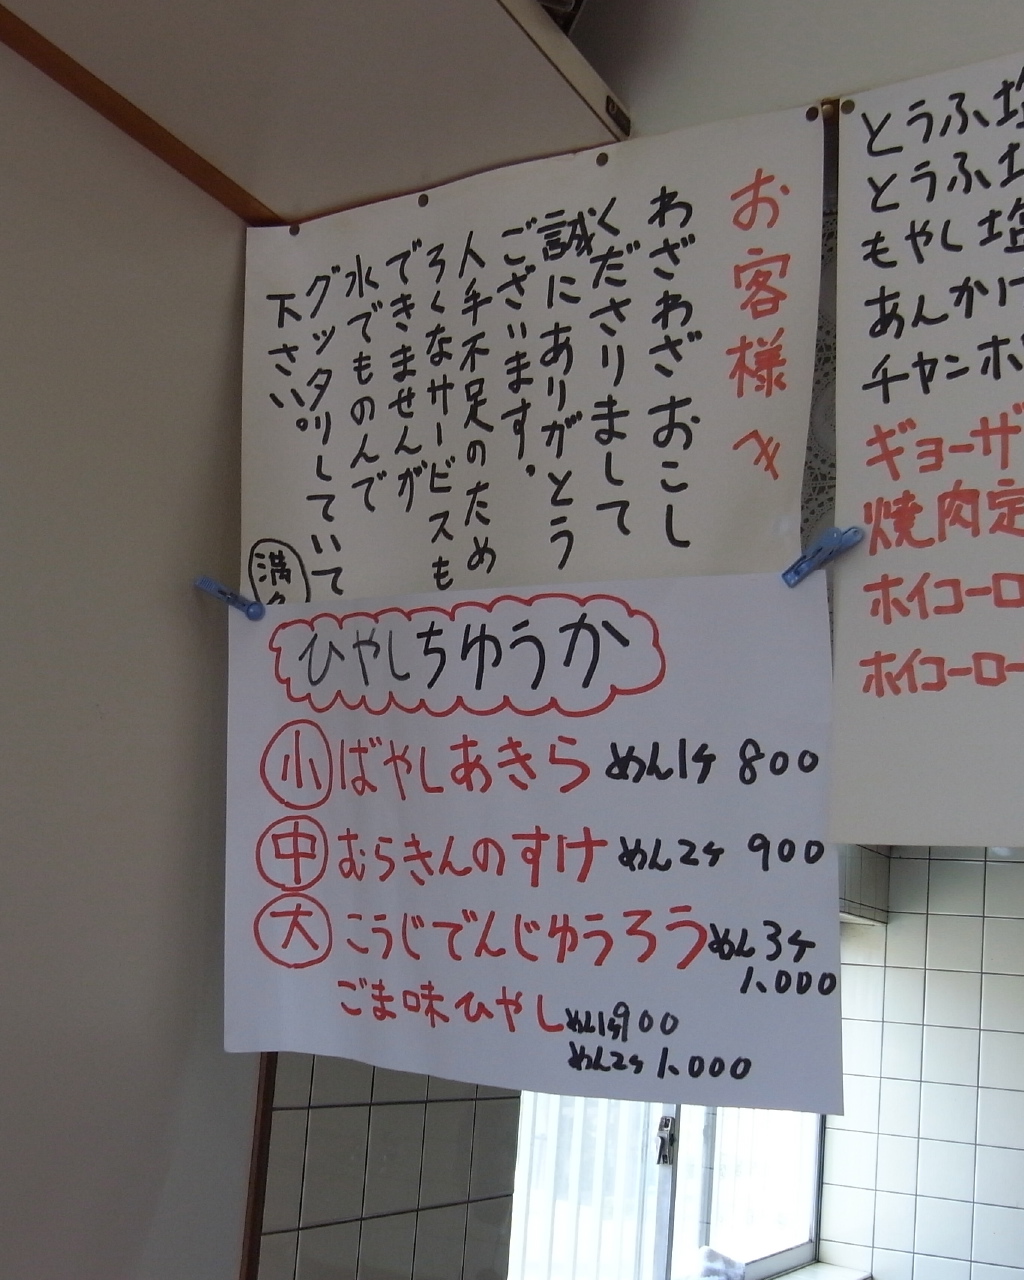 お客様へ
わざわざおこし
くださりまして
誠にありがとう
ございます。
人手不足のため
ろくなサービスも
できませんが
水でものんで
グッタリしていて
下さい。
満
ひやしちゆうか
小 ばやしあきら めん1ケ 800
中 むらきんのすけ めん2ケ 900
大 こうじでんじゆうろう めん3ケ
1.000
ごま味ひやし めん1ケ 900
めん2ケ 1.000
とうふ塩
とうふ塩
もやし塩
あんかけ
チャンポ
ギョーザ
焼肉定
ホイコーロ
ホイコーロー